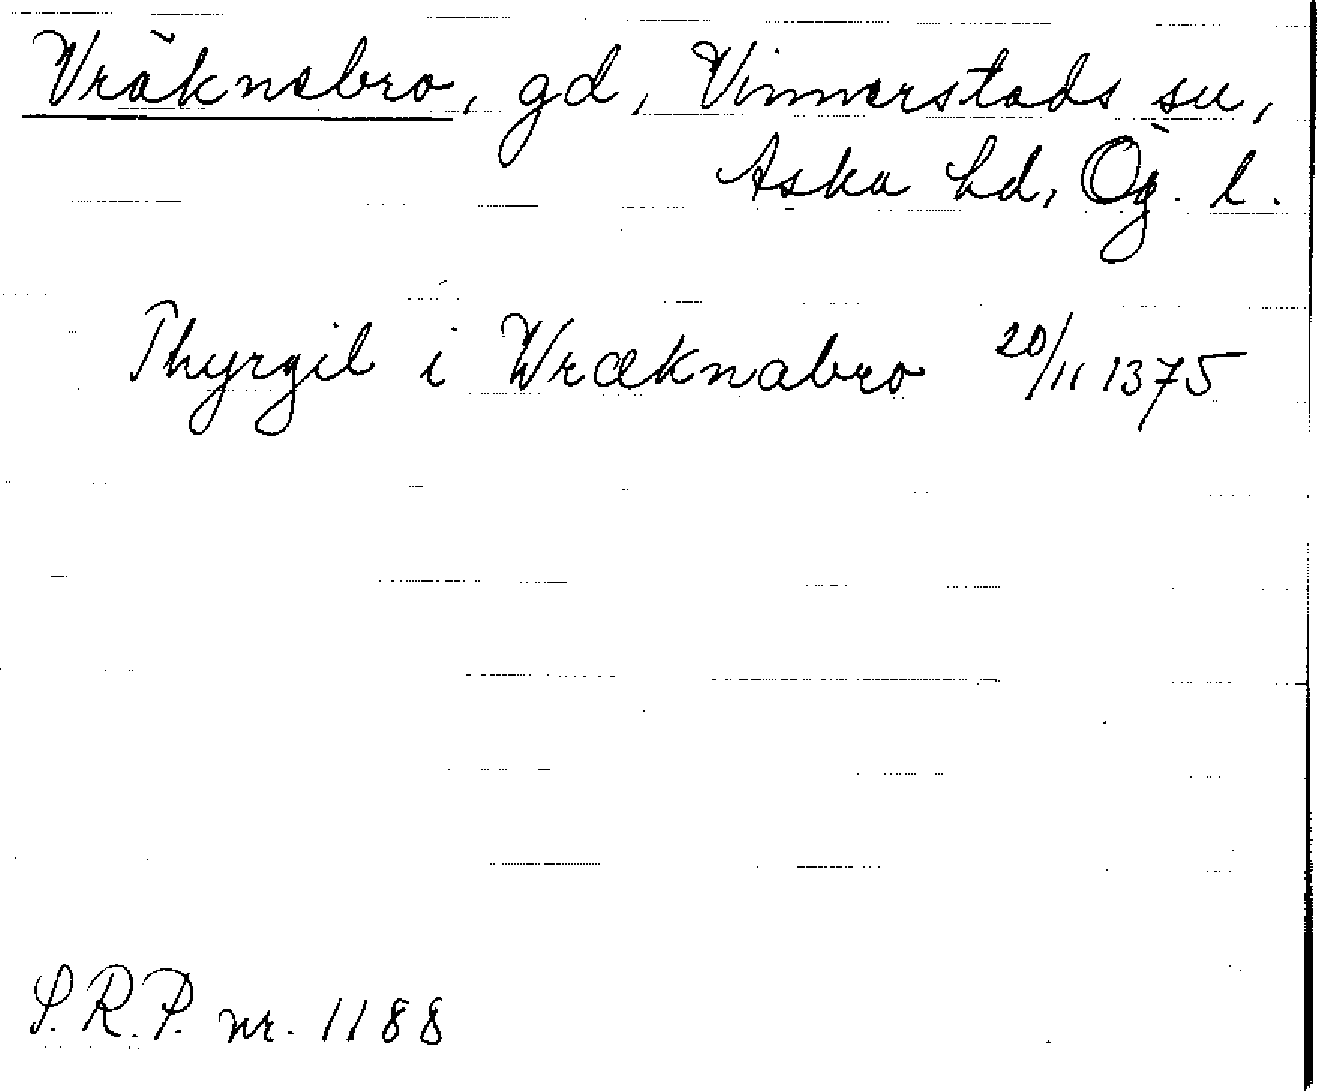 Vräknebro, gd, Vinnerstads sn,
Aska hd, Ög. l.
Thyrgil i Wræknabro 20/11 1375
S.R.P. nr. 1188